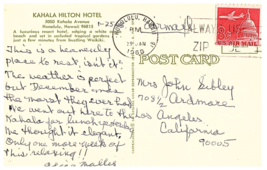 KAHALA HILTON HOTEL
5000 Kahala Avenue
Honolulu, Hawaii 96815
A luxurious resort hotel, edging a white sand
beach and a secluded tropical garden,
just a few minutes from bustling Waikiki.
This is a heavenly
place to rest, isn't it.
The weather is perfect
but December was
the worst they ever had
We went out here to the
Kahala for lunch yesterday
We thought it elegant.
Only one more week of
this relaxing!!
HONOLULU
PM
1969
ALWAYS
ZIP
U.S. AIR MAIL
POST CARD
Mrs John Sibley
708½ Ardmore
Los Angeles
California
90005